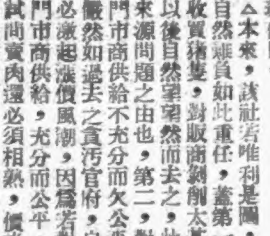 亼本來，該社者唯利是圖
自然難負如此重任，蓋第
收買豬隻，對販商剝削太甚
以後自然望望然而去之，此
來源問題之由也，第二，對
門市商供給不充分而欠公
儼然如過去之貪污官府，
必激起漲價風潮，因爲若對
門市商供給，充分而公平
試問賣肉還必須相熟，價